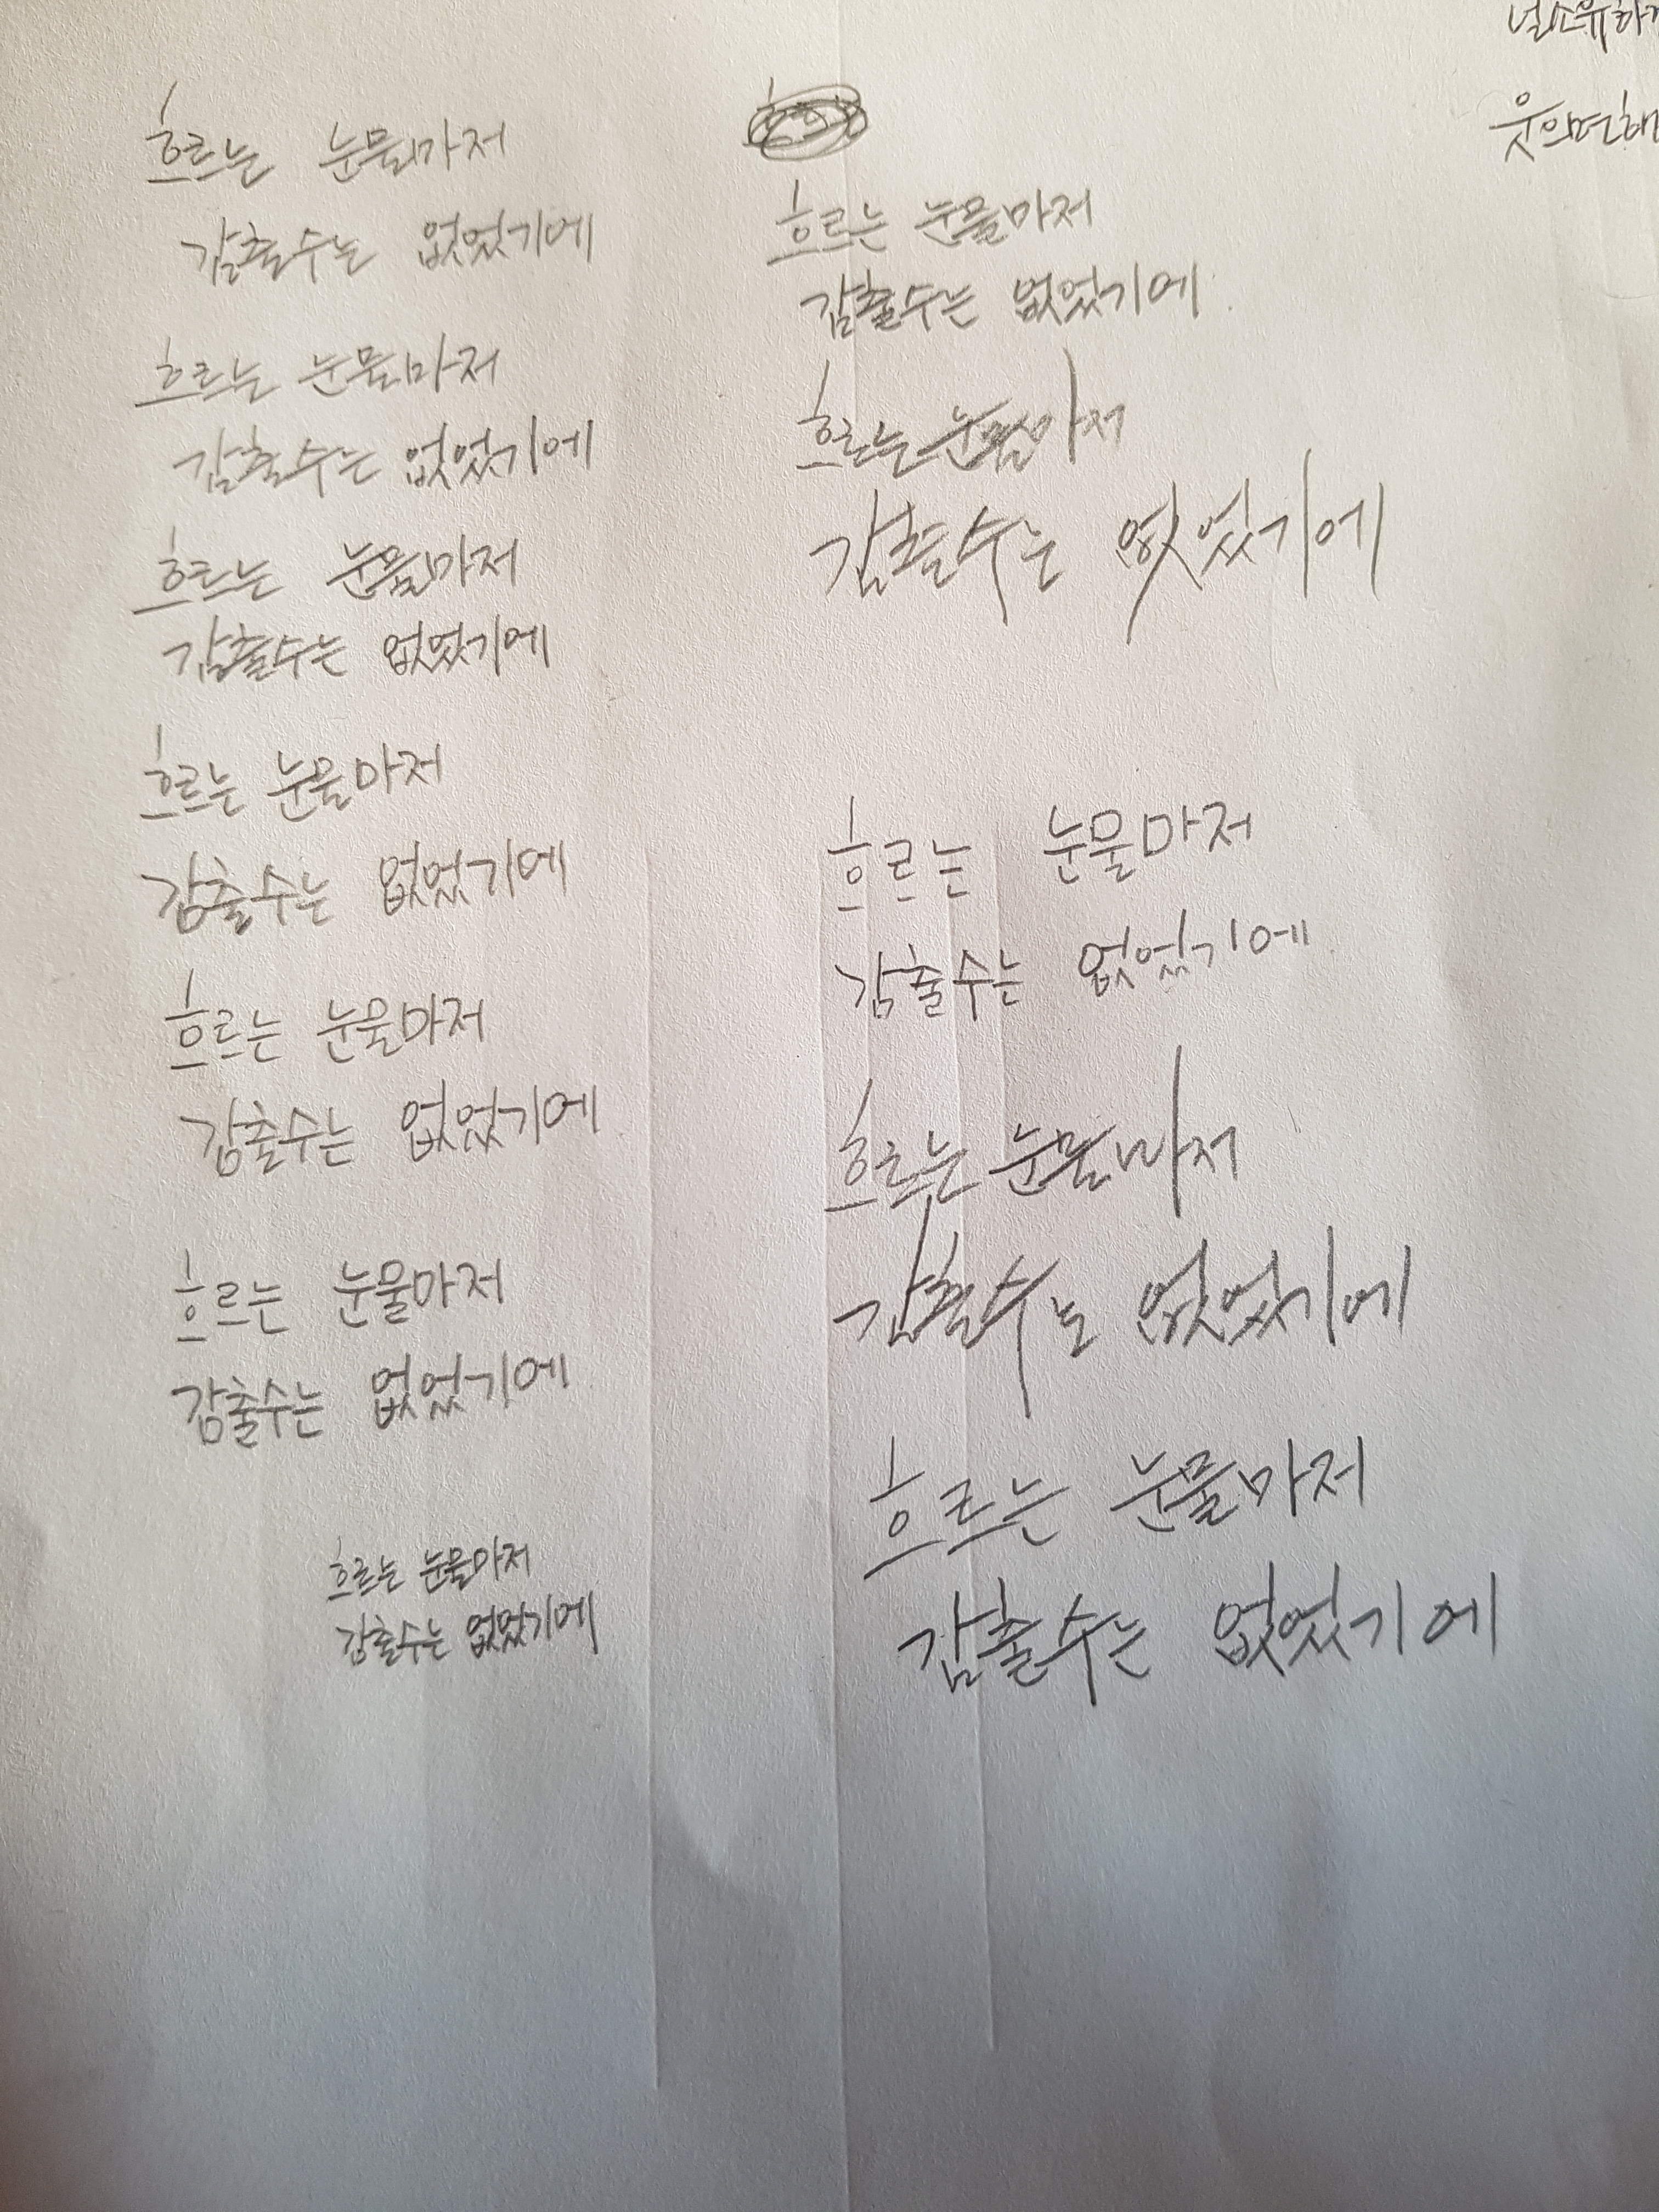 흐르는 눈물마저
감출수는 없었기에
흐르는 눈물마저
감출수는 없었기에
흐르는 눈물마저
감출수는 없었기에
흐르는 눈물마저
감출수는 없었기에
흐르는 눈물마저
감출수는 없었기에
흐르는 눈물마저
감출수는 없었기에
흐르는 눈물마저
감출수는 없었기에
흐르는 눈물마저
감출수는 없었기에
흐르는 눈물마저
감출수는 없었기에
흐르는 눈물마저
감출수는 없었기에
흐르는 눈물마저
감출수는 없었기에
흐르는 눈물마저
감출수는 없었기에
널소유하